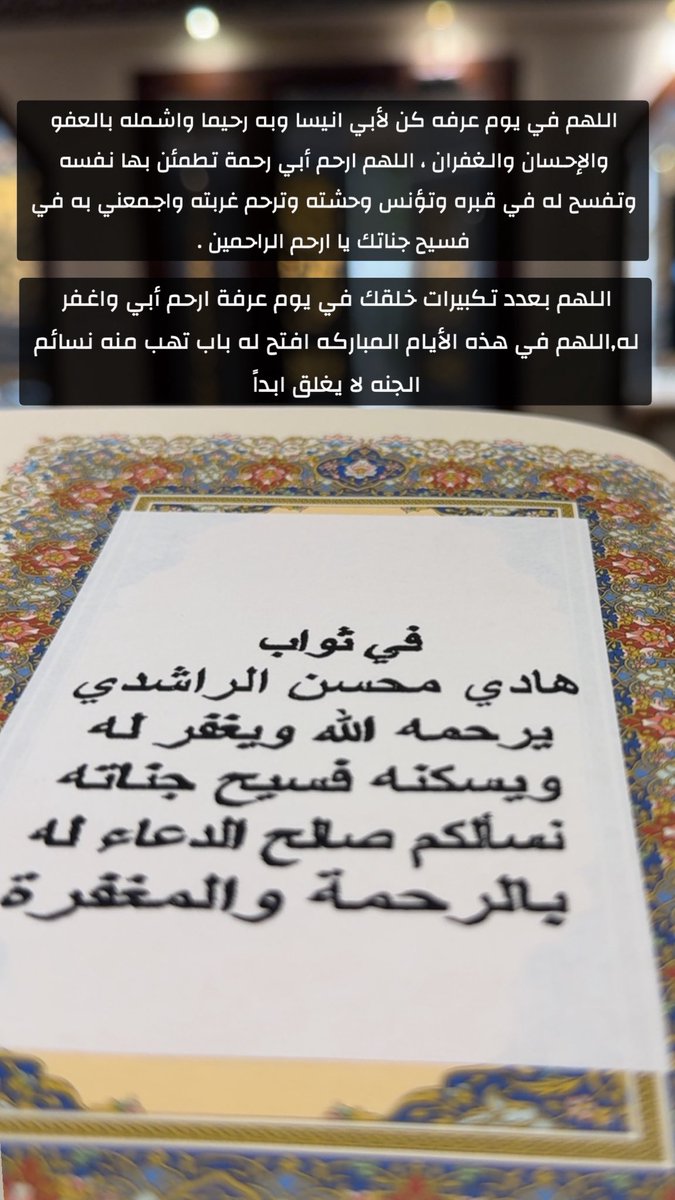 اللهم في يوم عرفه كن لأبي انيسا وبه رحيما واشمله بالعفو
والإحسان والغفران ، اللهم ارحم أبي رحمة تطمئن بها نفسه
وتفسح له في قبره وتؤنس وحشته وترحم غربته واجمعني به في
فسيح جناتك يا ارحم الراحمين .
اللهم بعدد تكبيرات خلقك في يوم عرفة ارحم أبي واغفر
له,اللهم في هذه الأيام المباركه افتح له باب تهب منه نسائم
الجنه لا يغلق ابداً
في ثواب
هادي محسن الراشدي
يرحمه الله ويغفر له
ويسكنه فسيح جناته
نسألكم صالح الدعاء له
بالرحمة والمغفرة